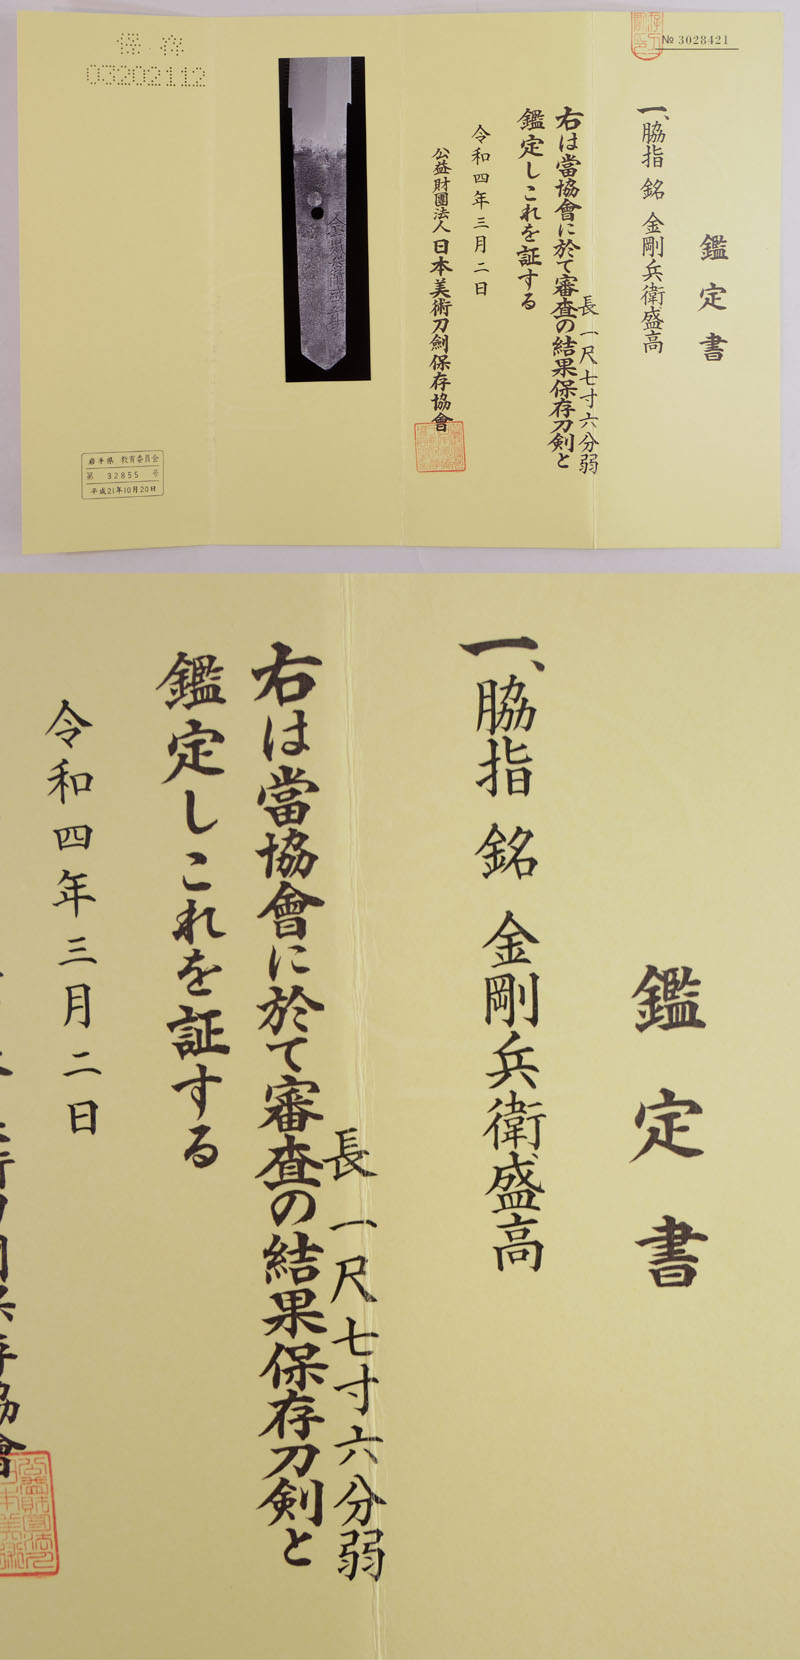 № 3028421
鑑定書
一、脇指 銘 金剛兵衛盛高
長 一尺七寸六分弱
右は當協會に於て審査の結果保存刀剣と
鑑定しこれを証する
令和四年三月二日
公益財團法人 日本美術刀劍保存協會
保存
03202112
岩手県 教育委員会
第 32855 号
平成21年10月20日
鑑定書
一、脇指 銘 金剛兵衛盛高
長 一尺七寸六分弱
右は當協會に於て審査の結果保存刀剣と
鑑定しこれを証する
令和四年三月二日